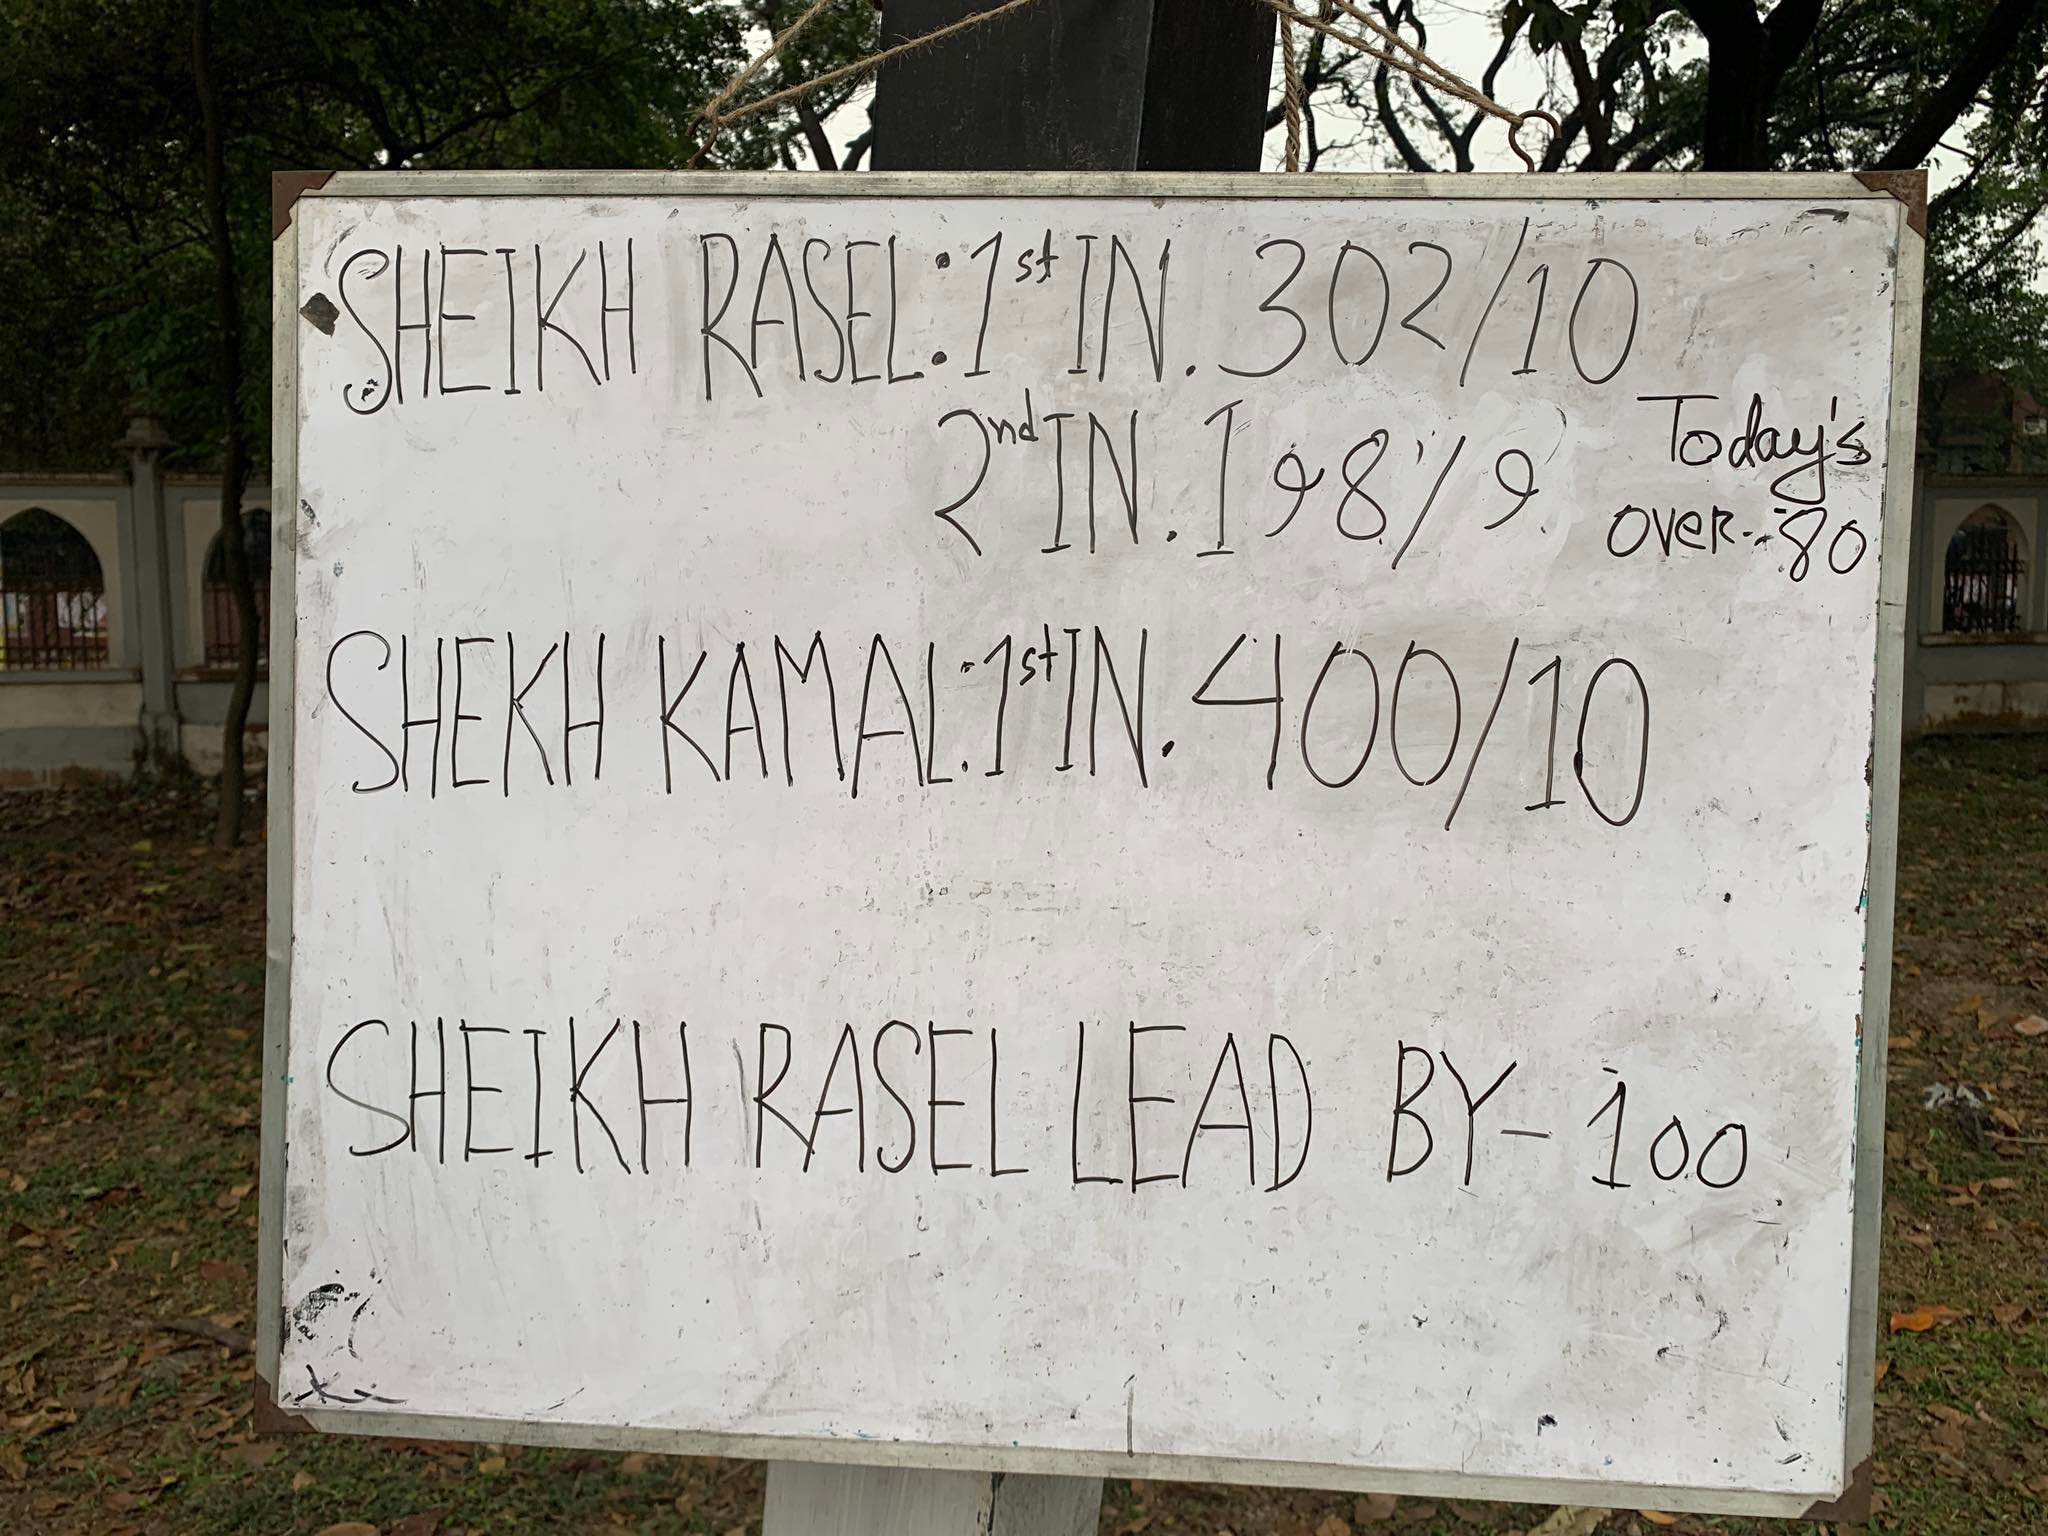 SHEIKH RASEL: 1st IN. 302/10
2nd IN. 198/9
Today's
over- 80
SHEKH KAMAL: 1st IN. 400/10
SHEIKH RASEL LEAD BY- 100